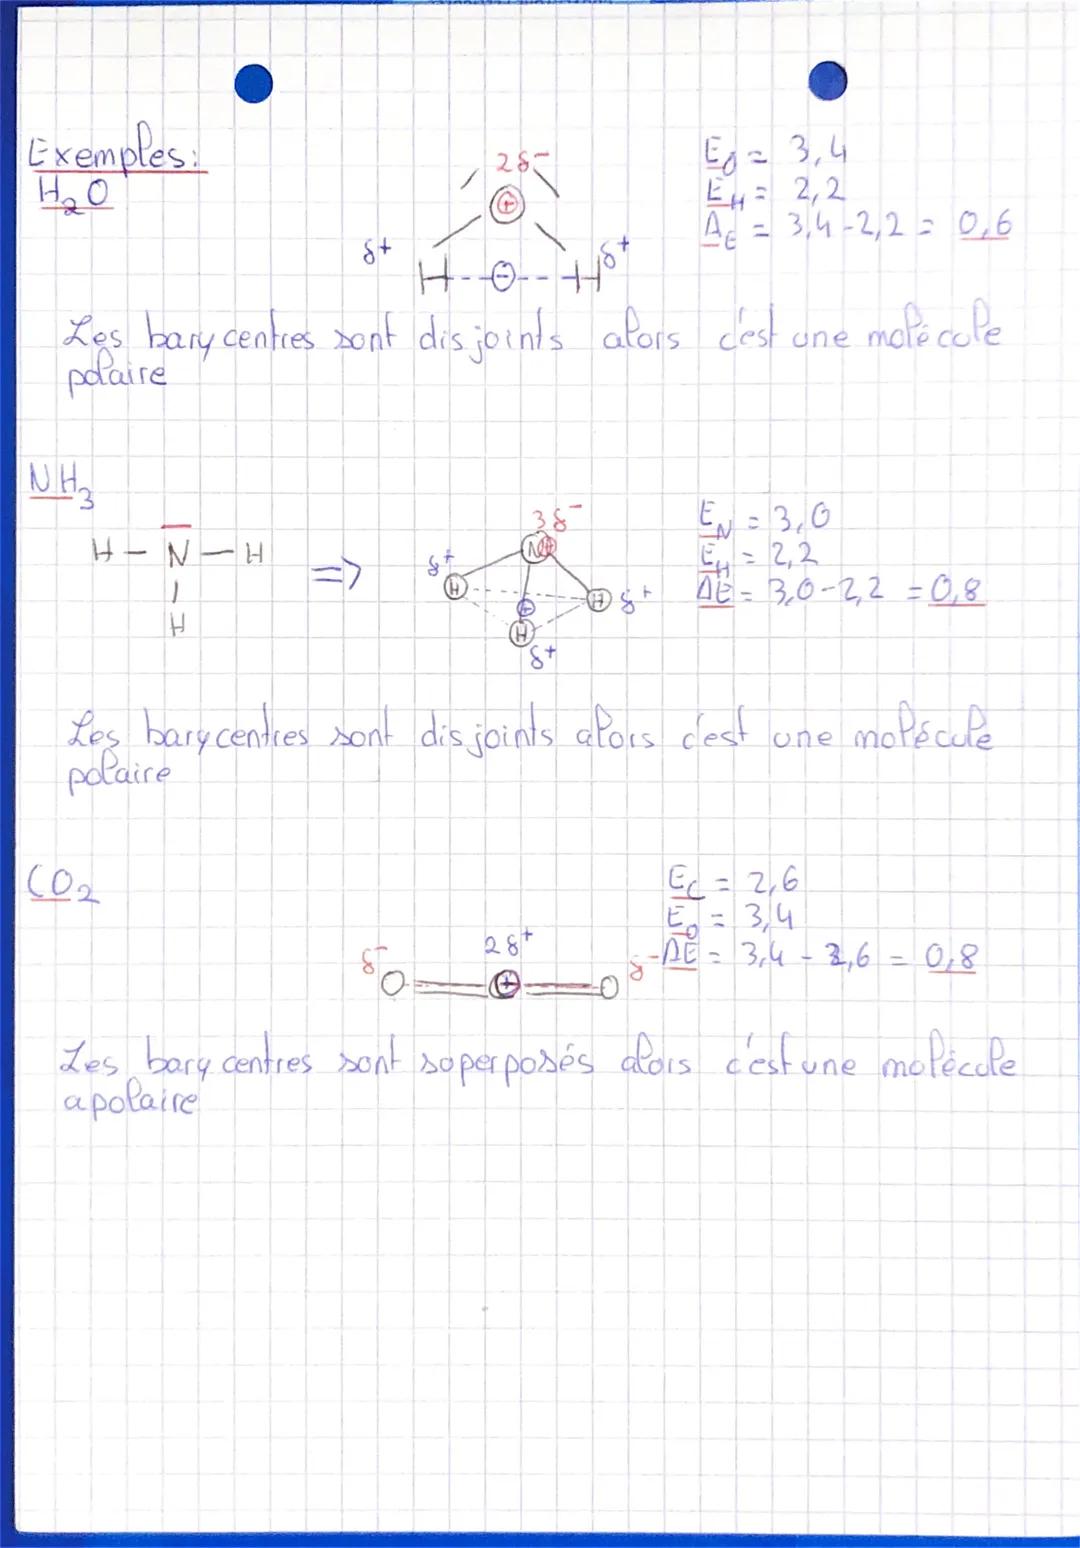 Exemples:
H₂O
2δ⁻
+
δ+
δ+
H--⊖--H
E_O = 3,4
E_H = 2,2
Δ_E = 3,4-2,2 = 0,6
Les barycentres sont disjoints alors c'est une molécule
polaire
NH₃
H - N - H
|
H
=>
3δ⁻
N ⊕
δ+
H
H δ+
⊕
H
δ+
E_N = 3,0
E_H = 2,2
ΔE = 3,0-2,2 = 0,8
Les barycentres sont disjoints alors c'est une molécule
polaire
CO₂
2δ+
δ⁻
O = ⊕ = O
δ⁻
E_C = 2,6
E_O = 3,4
ΔE = 3,4 - 2,6 = 0,8
Les barycentres sont superposés alors c'est une molécule
apolaire